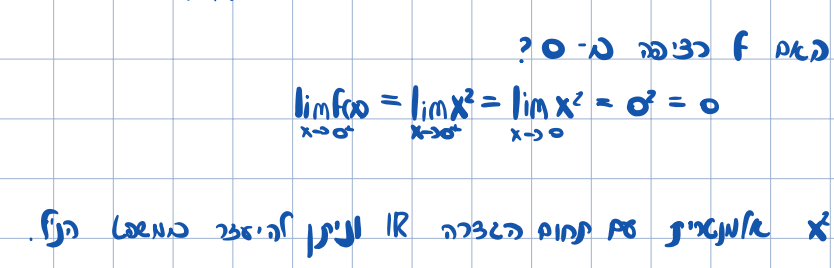 האם f רציפה ב-0?
lim f(x) = lim x² = lim x² = 0² = 0
x→0⁺ x→0⁺ x→0
x² אלמנטרית עם תחום הגדרה ℝ וניתן להיעזר במשפט הנ"ל.